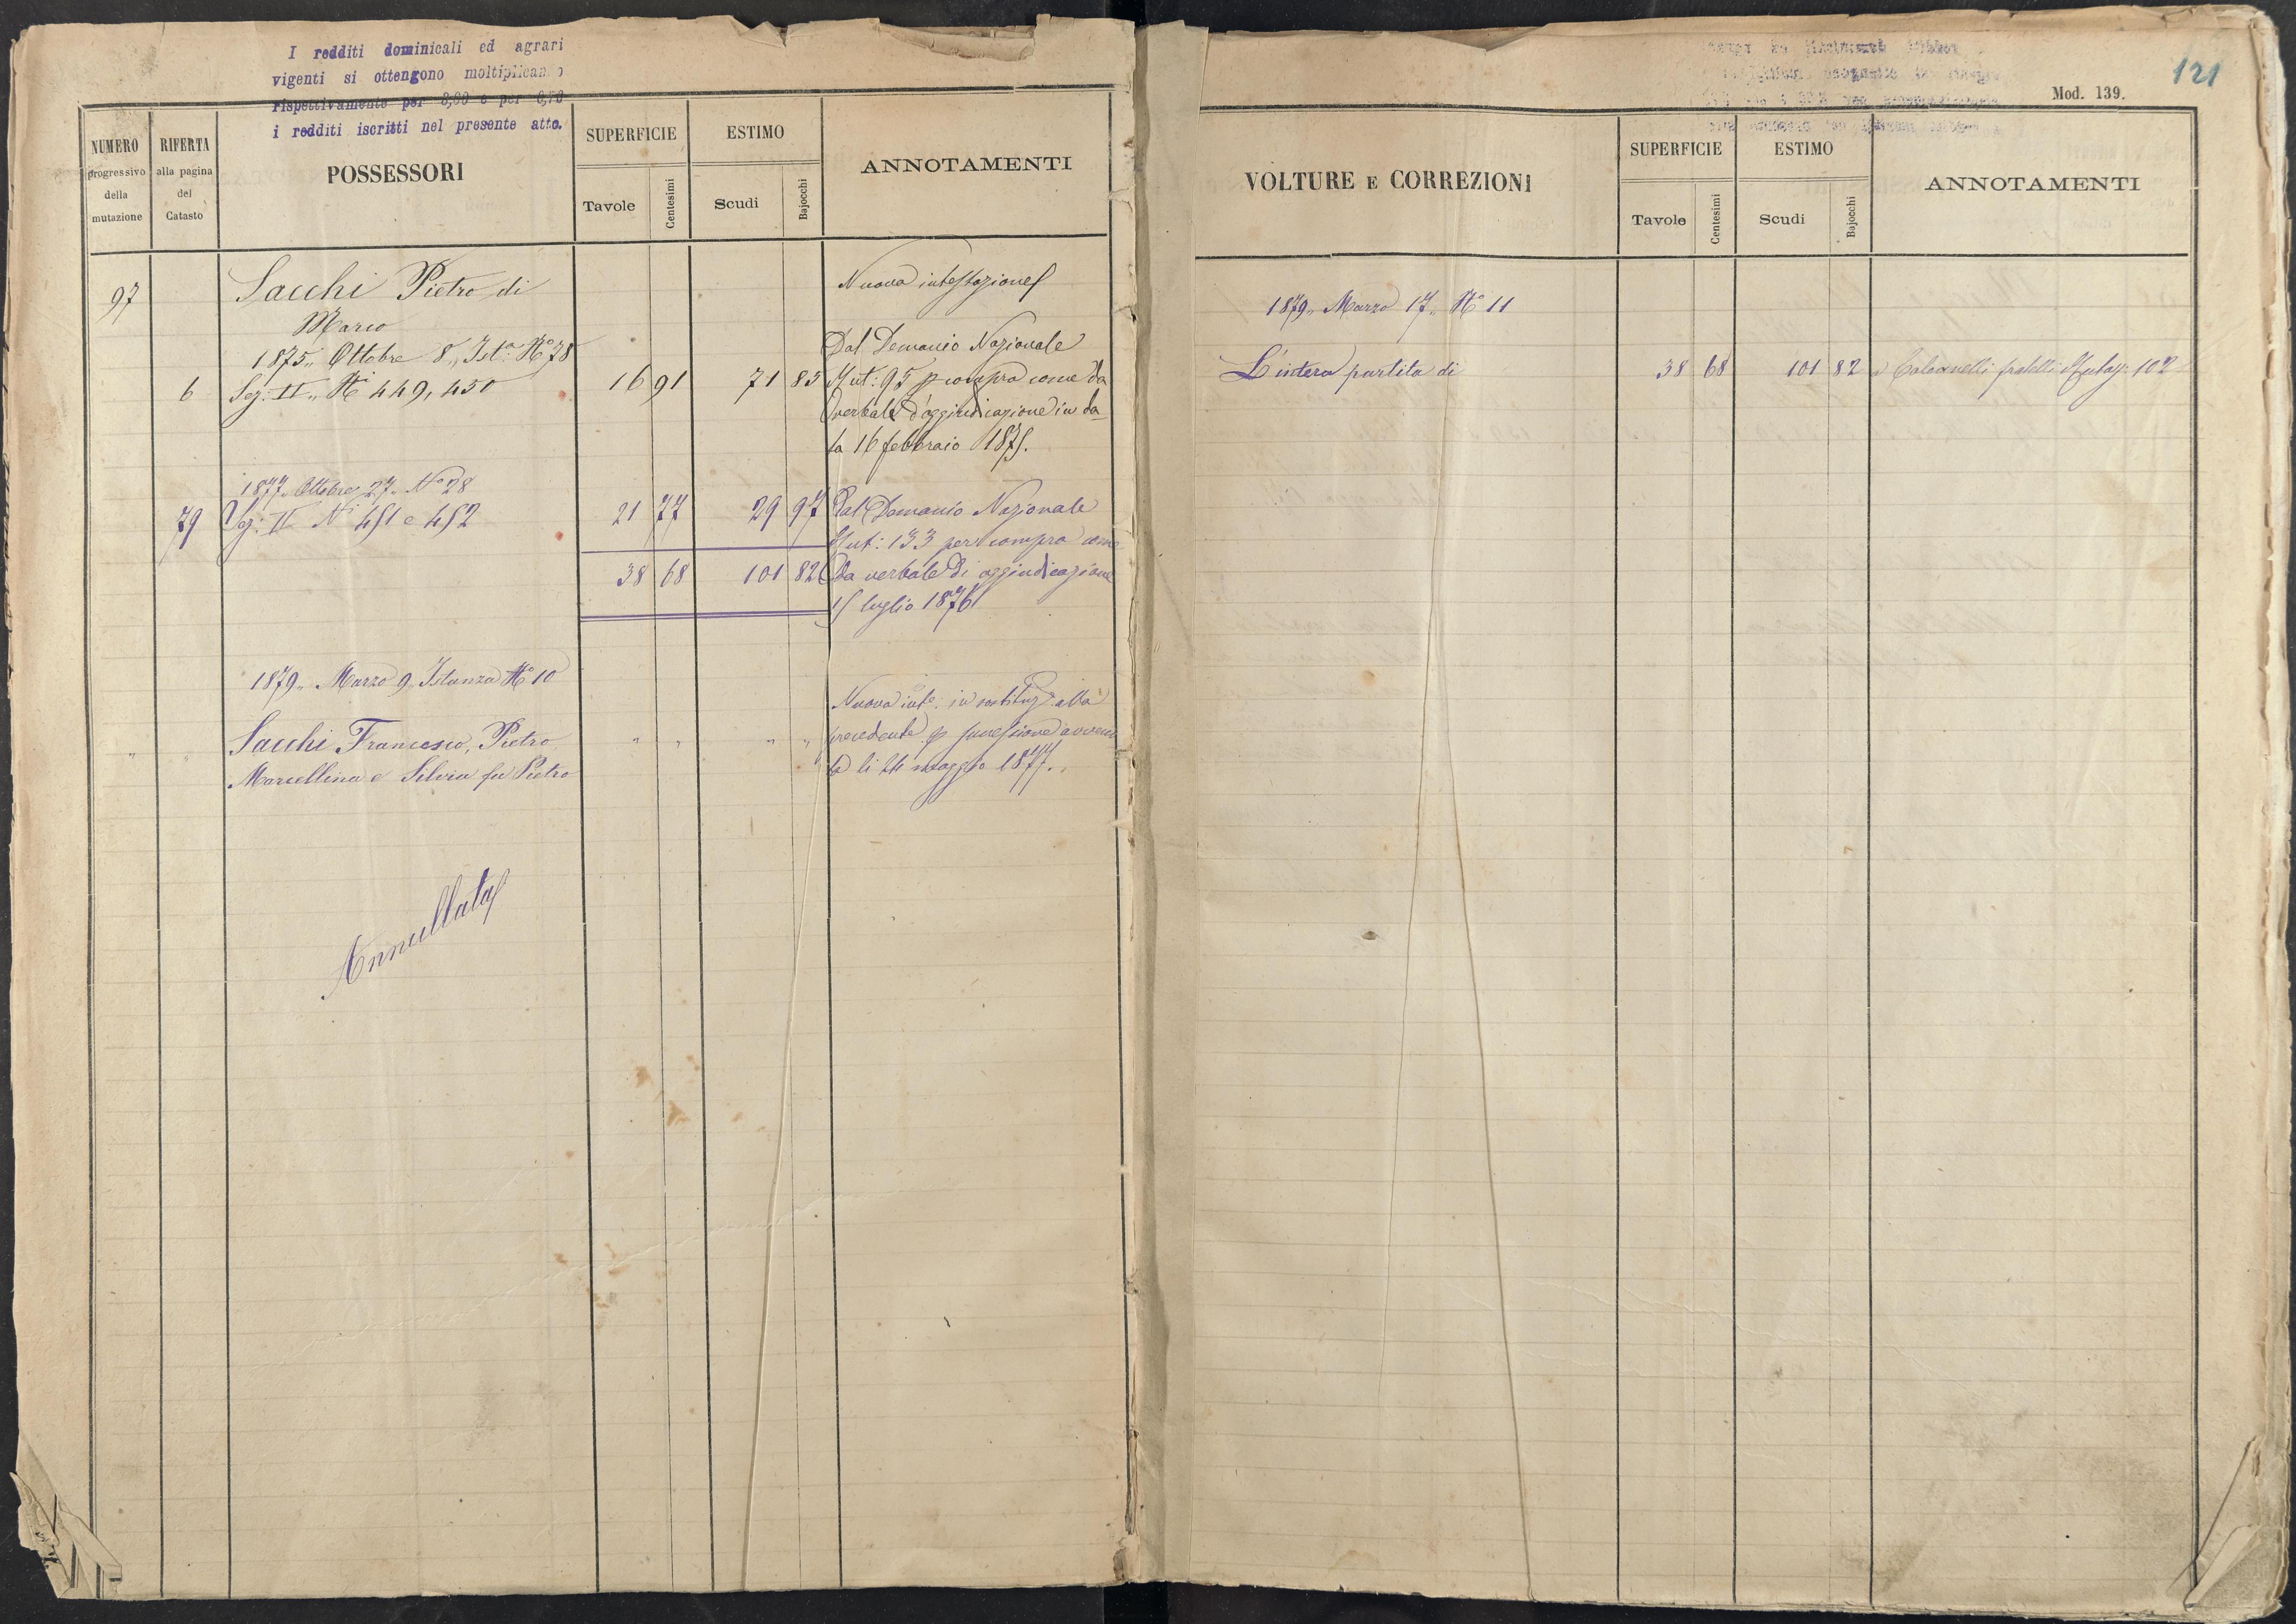 I redditi dominicali ed agrari
vigenti si ottengono moltiplicando
rispettivamente per
i redditi iscritti nel presente atto.
NUMERO progressivo della mutazione
RIFERTA alla pagina del Catasto
POSSESSORI
SUPERFICIE
Tavole
Centesimi
ESTIMO
Scudi
Bajocchi
ANNOTAMENTI
97
Sacchi Pietro di
Marco
1875,, Ottobre 8,, Ist.a N.o 78
6 Sez: II,, N.i 449, 450 16 91 71 85
Nuova intestazione
Dal Demanio Nazionale
Mut: 95 p compra come da
verbale d'aggiudicazione in da-
ta 16 febbraio 1875.
1877,, Ottobre 27,, N.o 28
79 Sez: II N.i 451 e 452 21 77 29 97
38 68 101 82
Dal Demanio Nazionale
Mut: 133 per compra come
da verbale di aggiudicazione
15 luglio 1876
1879,, Marzo 9,, Istanza N.o 10
" " Sacchi Francesco, Pietro " " " "
Marcellina e Silvia fu Pietro
Nuova int.e: in sostituz.e alla
precedente p successione avvenu
ta li 24 maggio 1877.
Annullata
121
Mod. 139.
VOLTURE E CORREZIONI
SUPERFICIE
Tavole
Centesimi
ESTIMO
Scudi
Bajocchi
ANNOTAMENTI
1879,, Marzo 17,, N.o 11
L'intera partita di 38 68 101 82 a fratelli 102